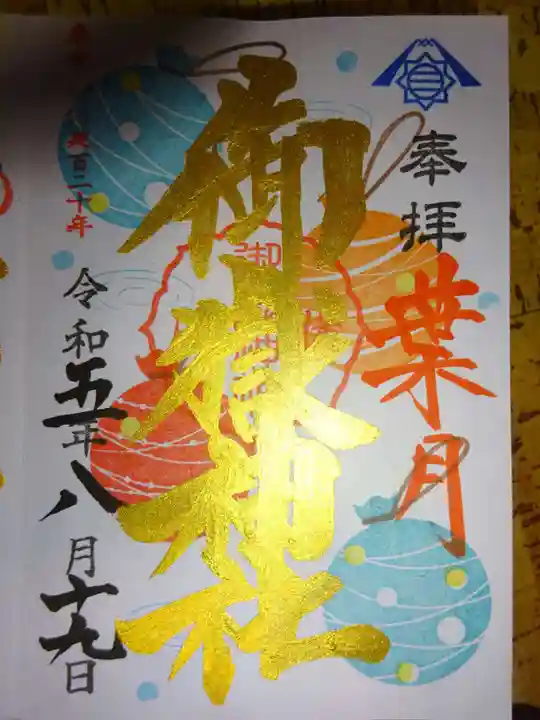 奉拝
葉月
御嶽神社
六百二十年
令和五年八月十九日